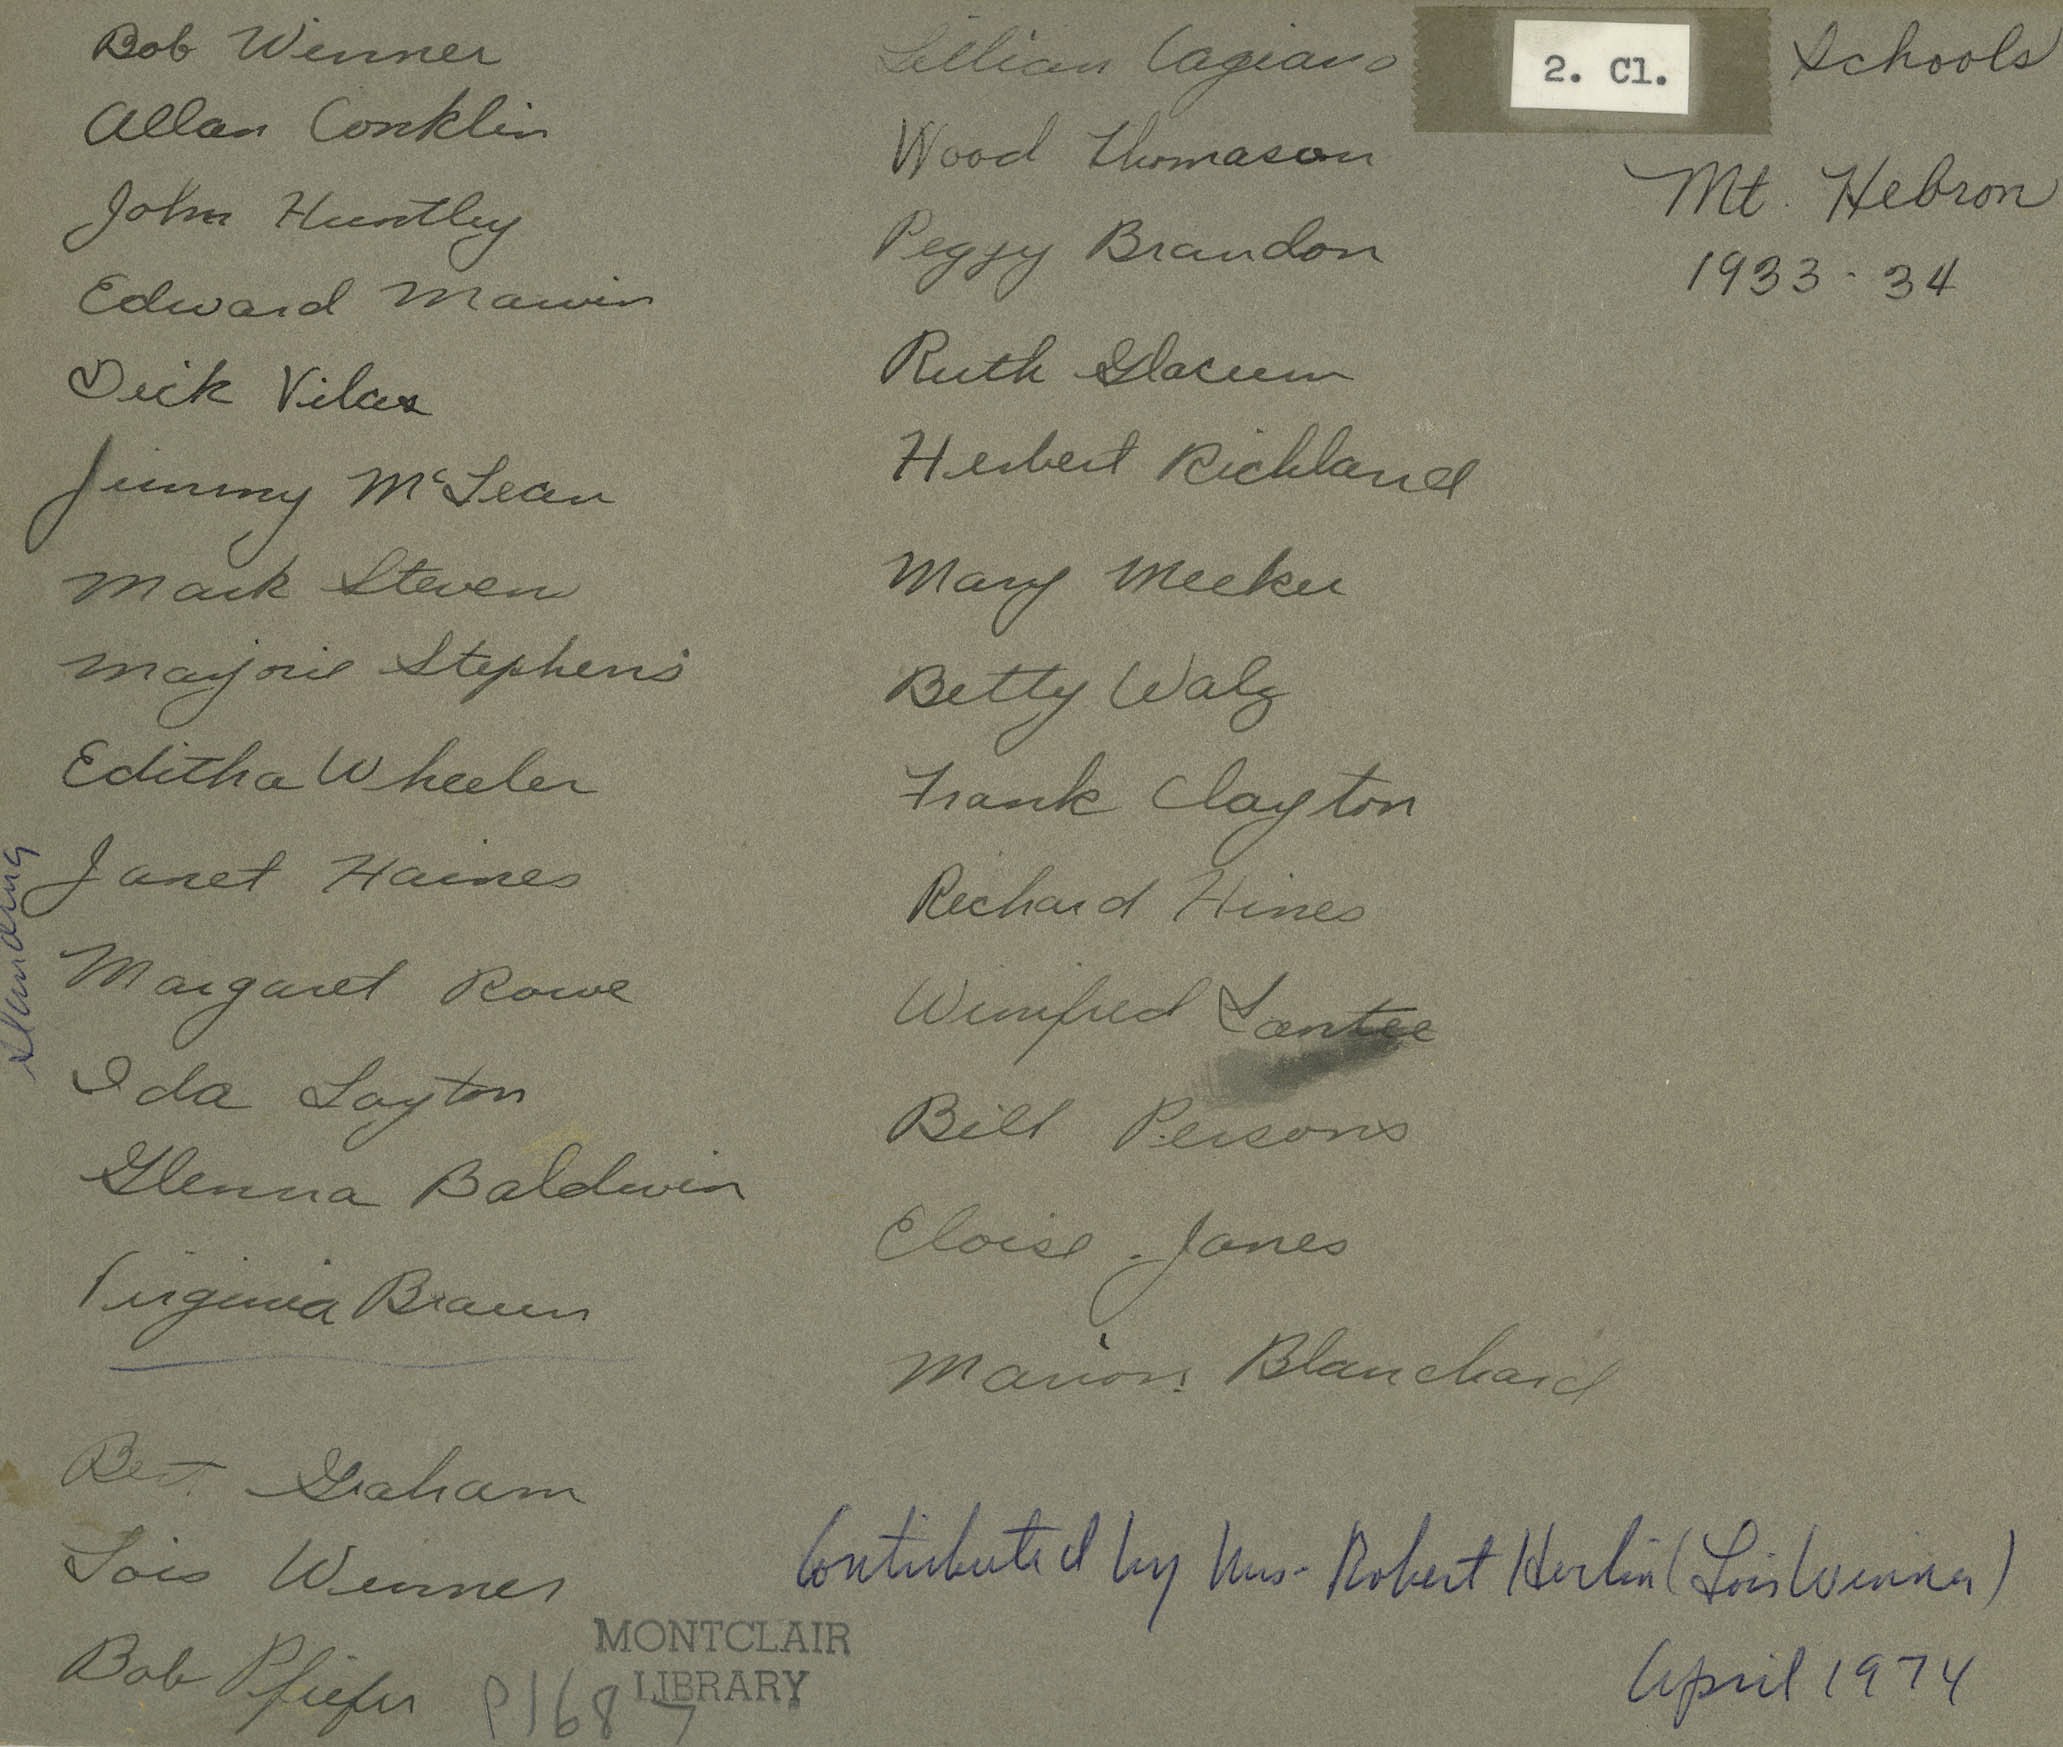 Bob Winner
Allan Conklin
John Huntley
Edward Marvin
Dick Vilas
Jimmy McLean
Mark Steven
Marjorie Stephens
Editha Wheeler
Janet Haines
Margaret Rowe
Ida Layton
Glenna Baldwin
Virginia Braun
Standing
Bert Graham
Lois Wenner
Bob Pfiefer
Lillian Cagiano
Wood Thomason
Peggy Brandon
Ruth Glacum
Herbert Richland
Mary Meeker
Betty Walz
Frank Clayton
Richard Hines
Winifred Lantee
Bill Persons
Eloise Janes
Marion Blanchard
2. Cl.
Schools
Mt. Hebron
1933-34
Contributed by Mrs. Robert Herlin (Lois Winner)
April 1974
MONTCLAIR
LIBRARY
P1687